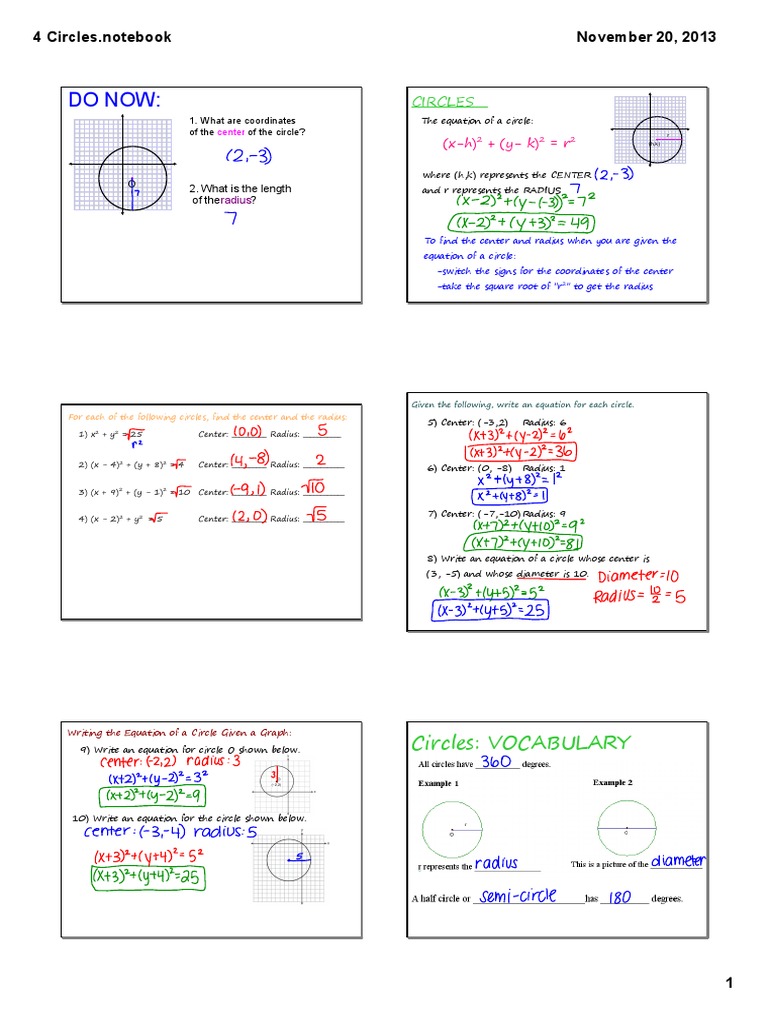 4 Circles.notebook
November 20, 2013
DO NOW:
1. What are coordinates
of the center of the circle?
(2,-3)
2. What is the length
of the radius?
7
7
CIRCLES
The equation of a circle:
(x-h)² + (y- k)² = r²
r
(h,k)
where (h,k) represents the CENTER (2,-3)
and r represents the RADIUS 7
(x-2)²+(y-(-3))²=7²
(x-2)²+(y+3)²=49
To find the center and radius when you are given the
equation of a circle:
-switch the signs for the coordinates of the center
-take the square root of "r²" to get the radius
For each of the following circles, find the center and the radius:
1) x² + y² =√25 Center: (0,0) Radius: 5
r²
2) (x - 4)² + (y + 8)² =√4 Center: (4,-8) Radius: 2
3) (x + 9)² + (y - 1)² =√10 Center: (-9,1) Radius: √10
4) (x - 2)² + y² =√5 Center: (2,0) Radius: √5
Given the following, write an equation for each circle.
5) Center: (-3,2) Radius: 6
(x+3)²+(y-2)²=6²
(x+3)²+(y-2)²=36
6) Center: (0, -8) Radius: 1
x²+(y+8)²=1²
x²+(y+8)²=1
7) Center: (-7,-10) Radius: 9
(x+7)²+(y+10)²=9²
(x+7)²+(y+10)²=81
8) Write an equation of a circle whose center is
(3, -5) and whose diameter is 10.
Diameter=10
Radius= 10/2 =5
(x-3)²+(y+5)²=5²
(x-3)²+(y+5)²=25
Writing the Equation of a Circle Given a Graph:
9) Write an equation for circle O shown below.
center:(-2,2) radius:3
(x+2)²+(y-2)²=3²
(x+2)²+(y-2)²=9
3
10) Write an equation for the circle shown below.
center:(-3,-4) radius:5
(x+3)²+(y+4)²=5²
(x+3)²+(y+4)²=25
5
Circles: VOCABULARY
All circles have 360 degrees.
Example 1
Example 2
r
r represents the radius
This is a picture of the diameter
A half circle or semi-circle has 180 degrees.
1